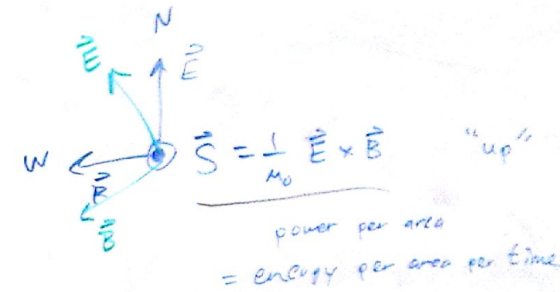 N
E⃗
E⃗
W
S⃗ = 1/μ₀ E⃗ × B⃗ "up"
B⃗
B⃗
power per area
= energy per area per time